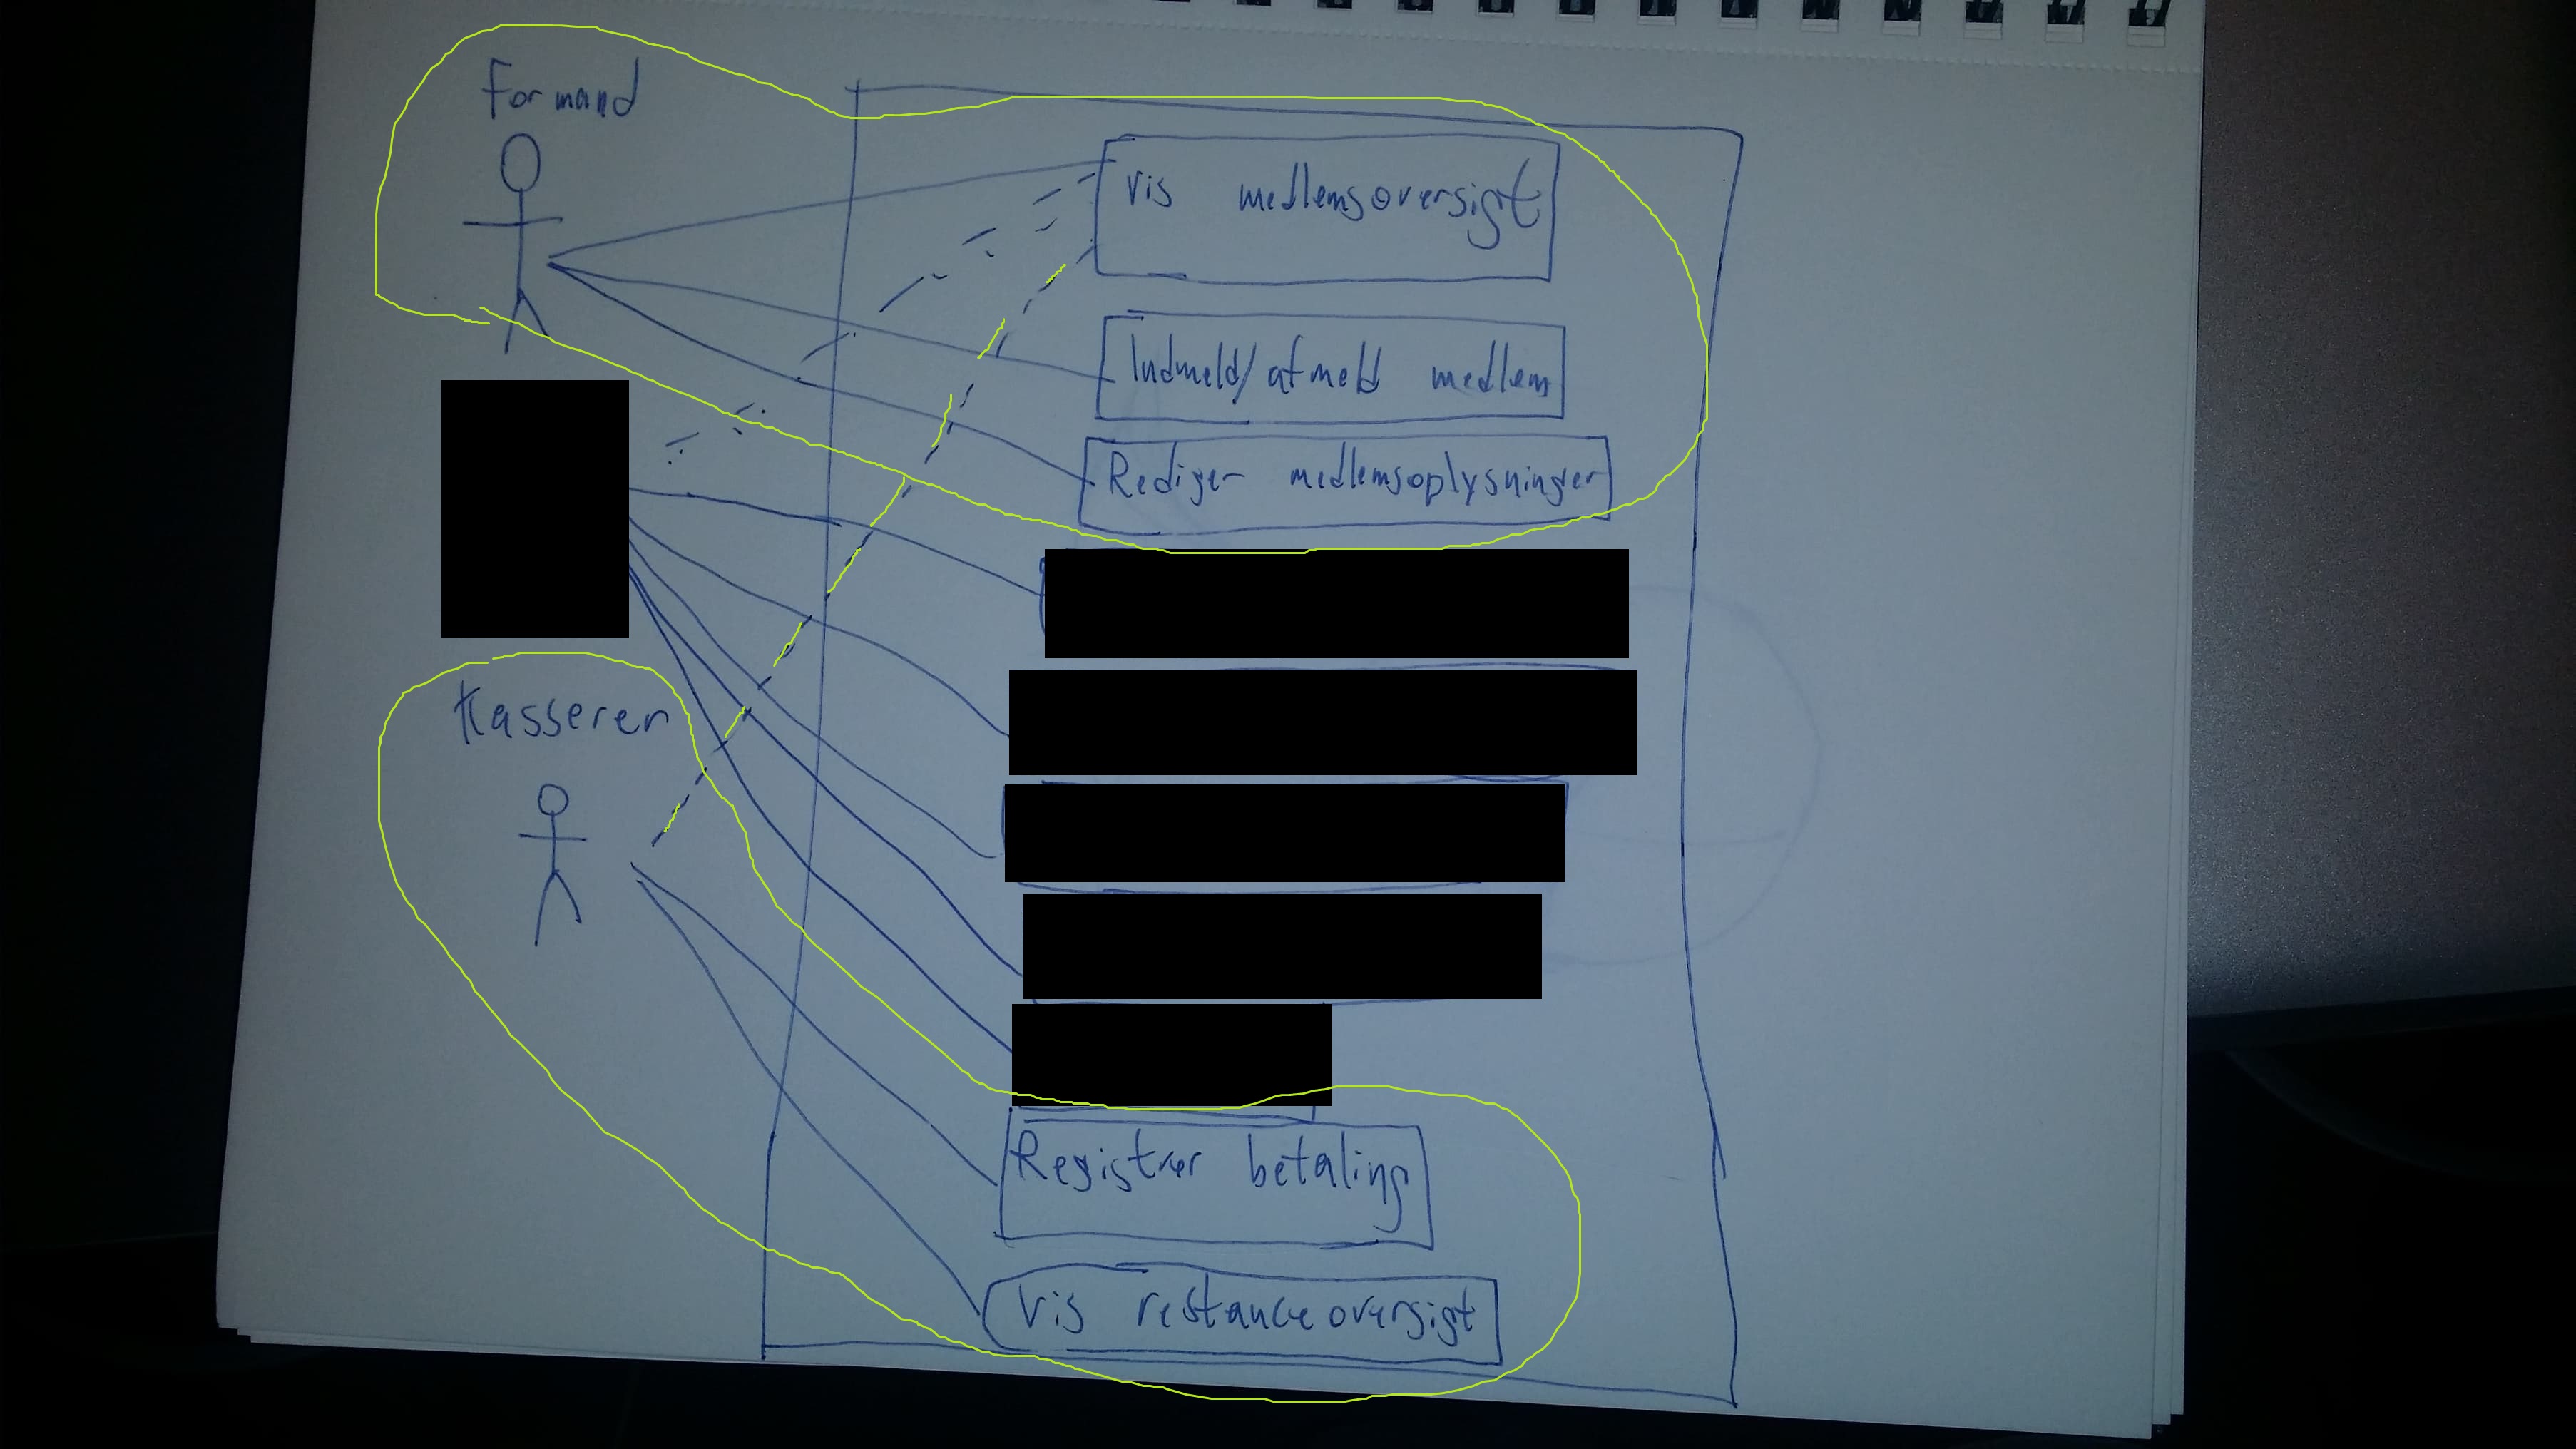 Formand
Vis medlemsoversigt
Indmeld/afmeld medlem
Rediger medlemsoplysninger
Kasserer
Registrer betaling
Vis restanceoversigt